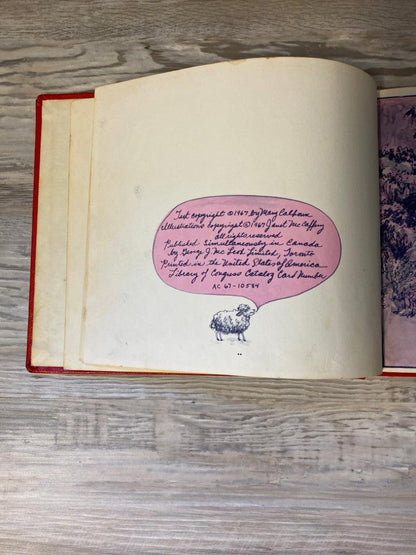 Text copyright ©1967 by Mary Calhoun
illustrations copyright ©1967 Janet McCaffery
all rights reserved
Published simultaneously in Canada
by George J. McLeod Limited, Toronto
Printed in the United States of America
Library of Congress Catalog Card Number
AC 67-10584